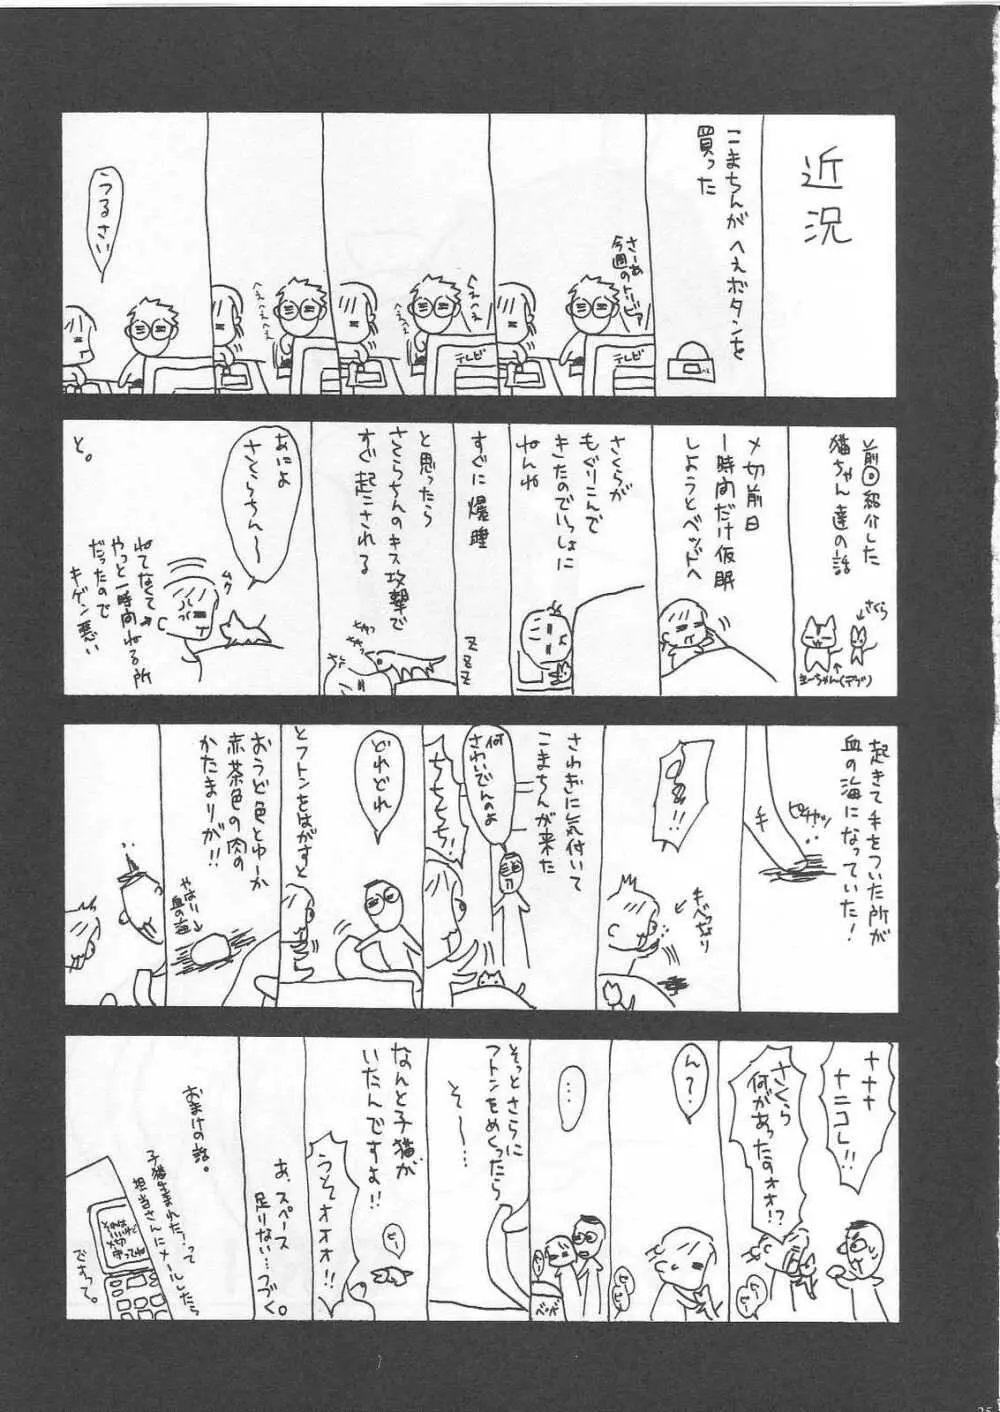 近況
こまちんがへぇボタンを
買った
さーあ
今週のトリビア
テレビ
へぇへぇ
テレビ
へぇへぇへぇ
へぇへぇへぇ
うるさい
前回紹介した
猫ちゃん達の話
さくら
まーちゃん(デブ)
〆切前日
一時間だけ仮眠
しようとベッドへ
さくらが
もぐりこんで
きたのでいっしょに
ねんね
すぐに爆睡
ZZZ
と思ったら
さくらちんのキス攻撃で
すぐ起こされる
あによ
さくらちん〜
ムク
ねてなくて
やっと一時間ねる所
だったので
キゲン悪い
と。
起きて手をついた所が
血の海になっていた!
ピチャッ
手
さわぎに気付いて
こまちんが来た
何
さわいでんのよ
ちちちち!
どれどれ
とフトンをはがすと
おうど色とゆーか
赤茶色の肉の
かたまりが!!
やはり
血の海
ナナナ
ナニコレ!!
さくら
何があったのォオ!?
ん?
…
ベッド
そっとさらに
フトンをめくったら
そ〜…
なんと子猫が
いたんですよ!!
ピー
うっそオオオ!!
あ、スペース
足りない…つづく。
おまけの話。
子猫生まれた!って
担当さんにメールしたら
ですって。